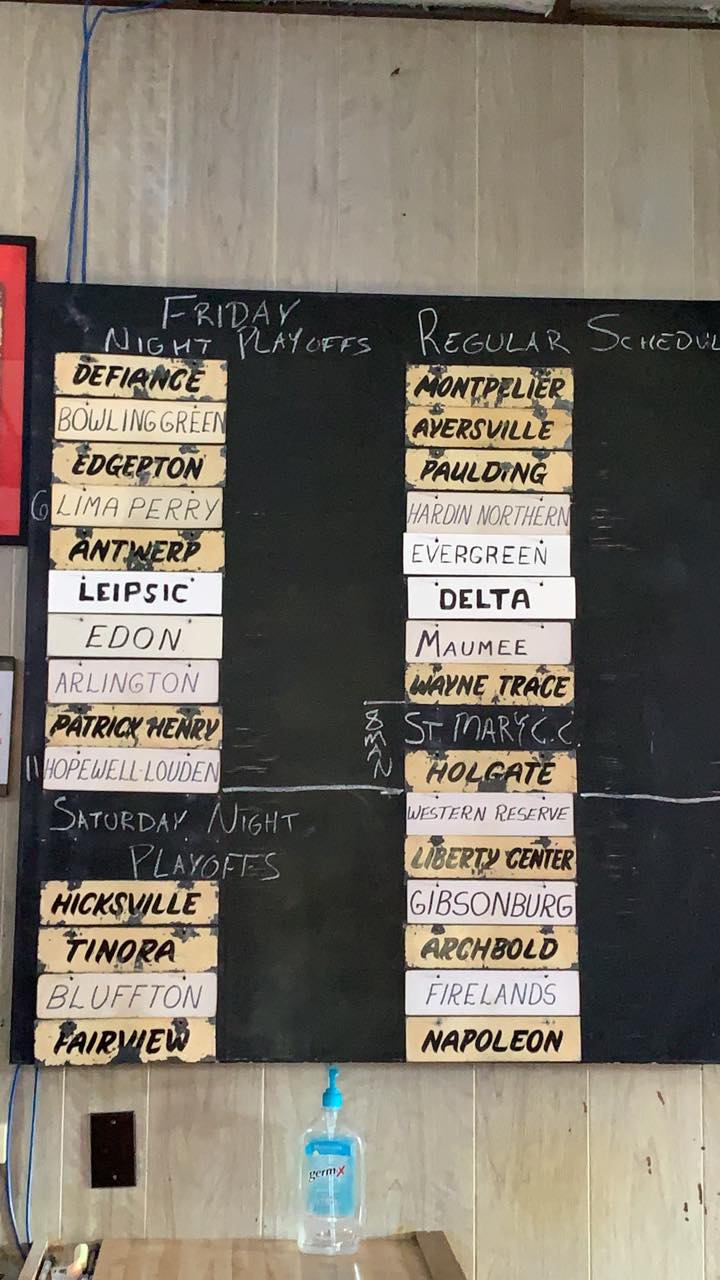 FRIDAY
NIGHT PLAYOFFS
DEFIANCE
BOWLING GREEN
EDGERTON
6 LIMA PERRY
ANTWERP
LEIPSIC
EDON
ARLINGTON
PATRICK HENRY
11 HOPEWELL-LOUDEN
SATURDAY NIGHT
PLAYOFFS
HICKSVILLE
TINORA
BLUFFTON
FAIRVIEW
REGULAR SCHEDUL
MONTPELIER
AYERSVILLE
PAULDING
HARDIN NORTHERN
EVERGREEN
DELTA
MAUMEE
WAYNE TRACE
8 MAN
ST MARY C.C.
HOLGATE
WESTERN RESERVE
LIBERTY CENTER
GIBSONBURG
ARCHBOLD
FIRELANDS
NAPOLEON
germx